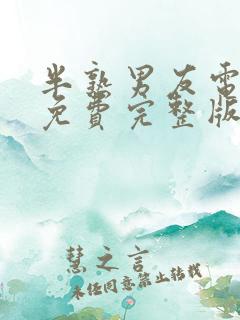 半熟男友電
免費完整版
慧之言
未经同意禁止转载